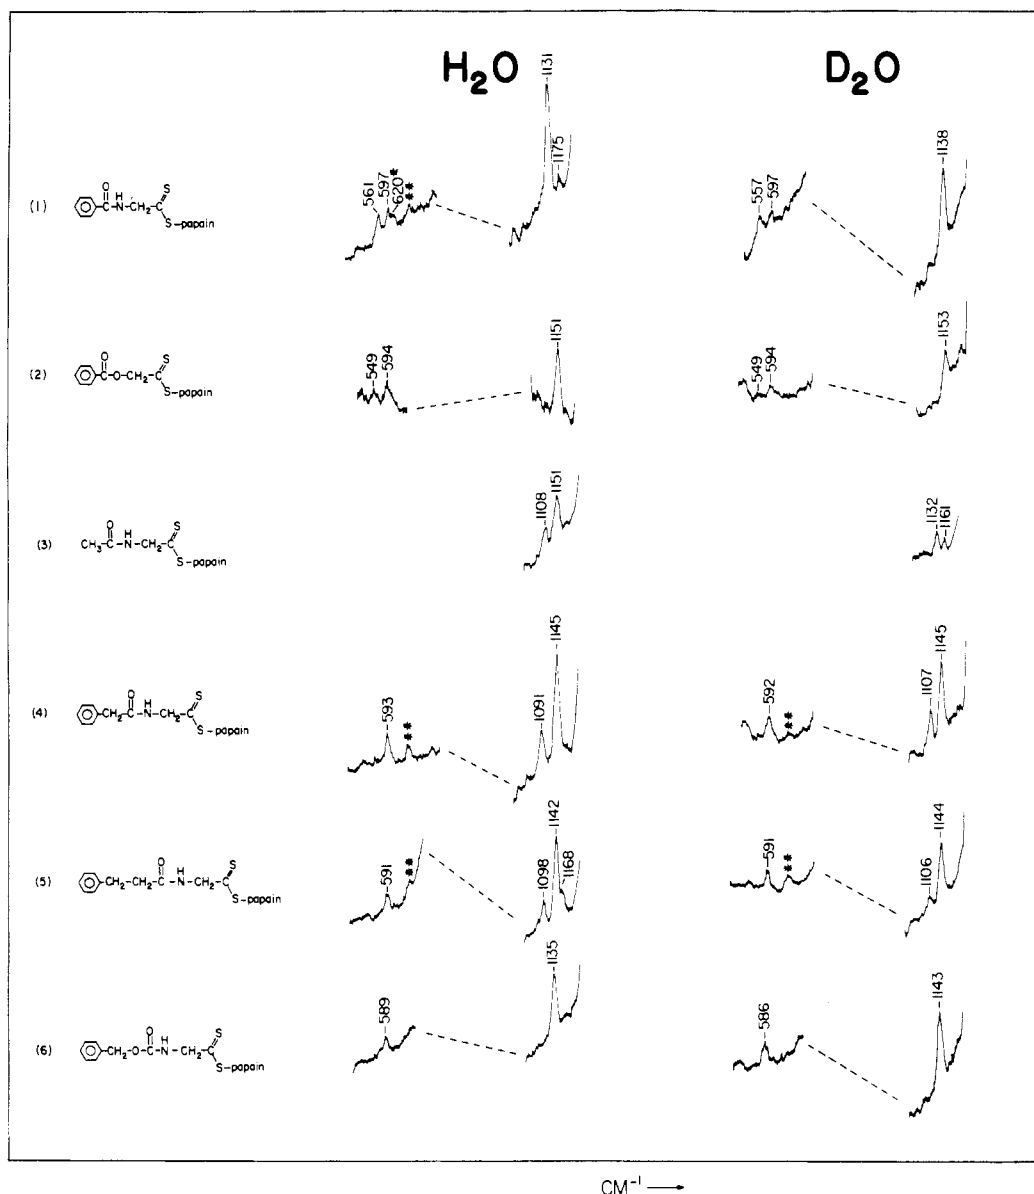 H2O D2O
(1) O H N CH2 C S S-papain 561 597 620* ** 1131 1175 557 597 1138
(2) O C O-CH2 C S S-papain 549 594 1151 549 594 1153
(3) CH3 C O H N CH2 C S S-papain 1108 1151 1132 1161
(4) CH2 C O H N CH2 C S S-papain 593 ** 1091 1145 592 ** 1107 1145
(5) CH2 CH2 C O H N CH2 C S S-papain 591 ** 1098 1142 1168 591 ** 1106 1144
(6) CH2 O C O H N CH2 C S S-papain 589 1135 586 1143
CM-1